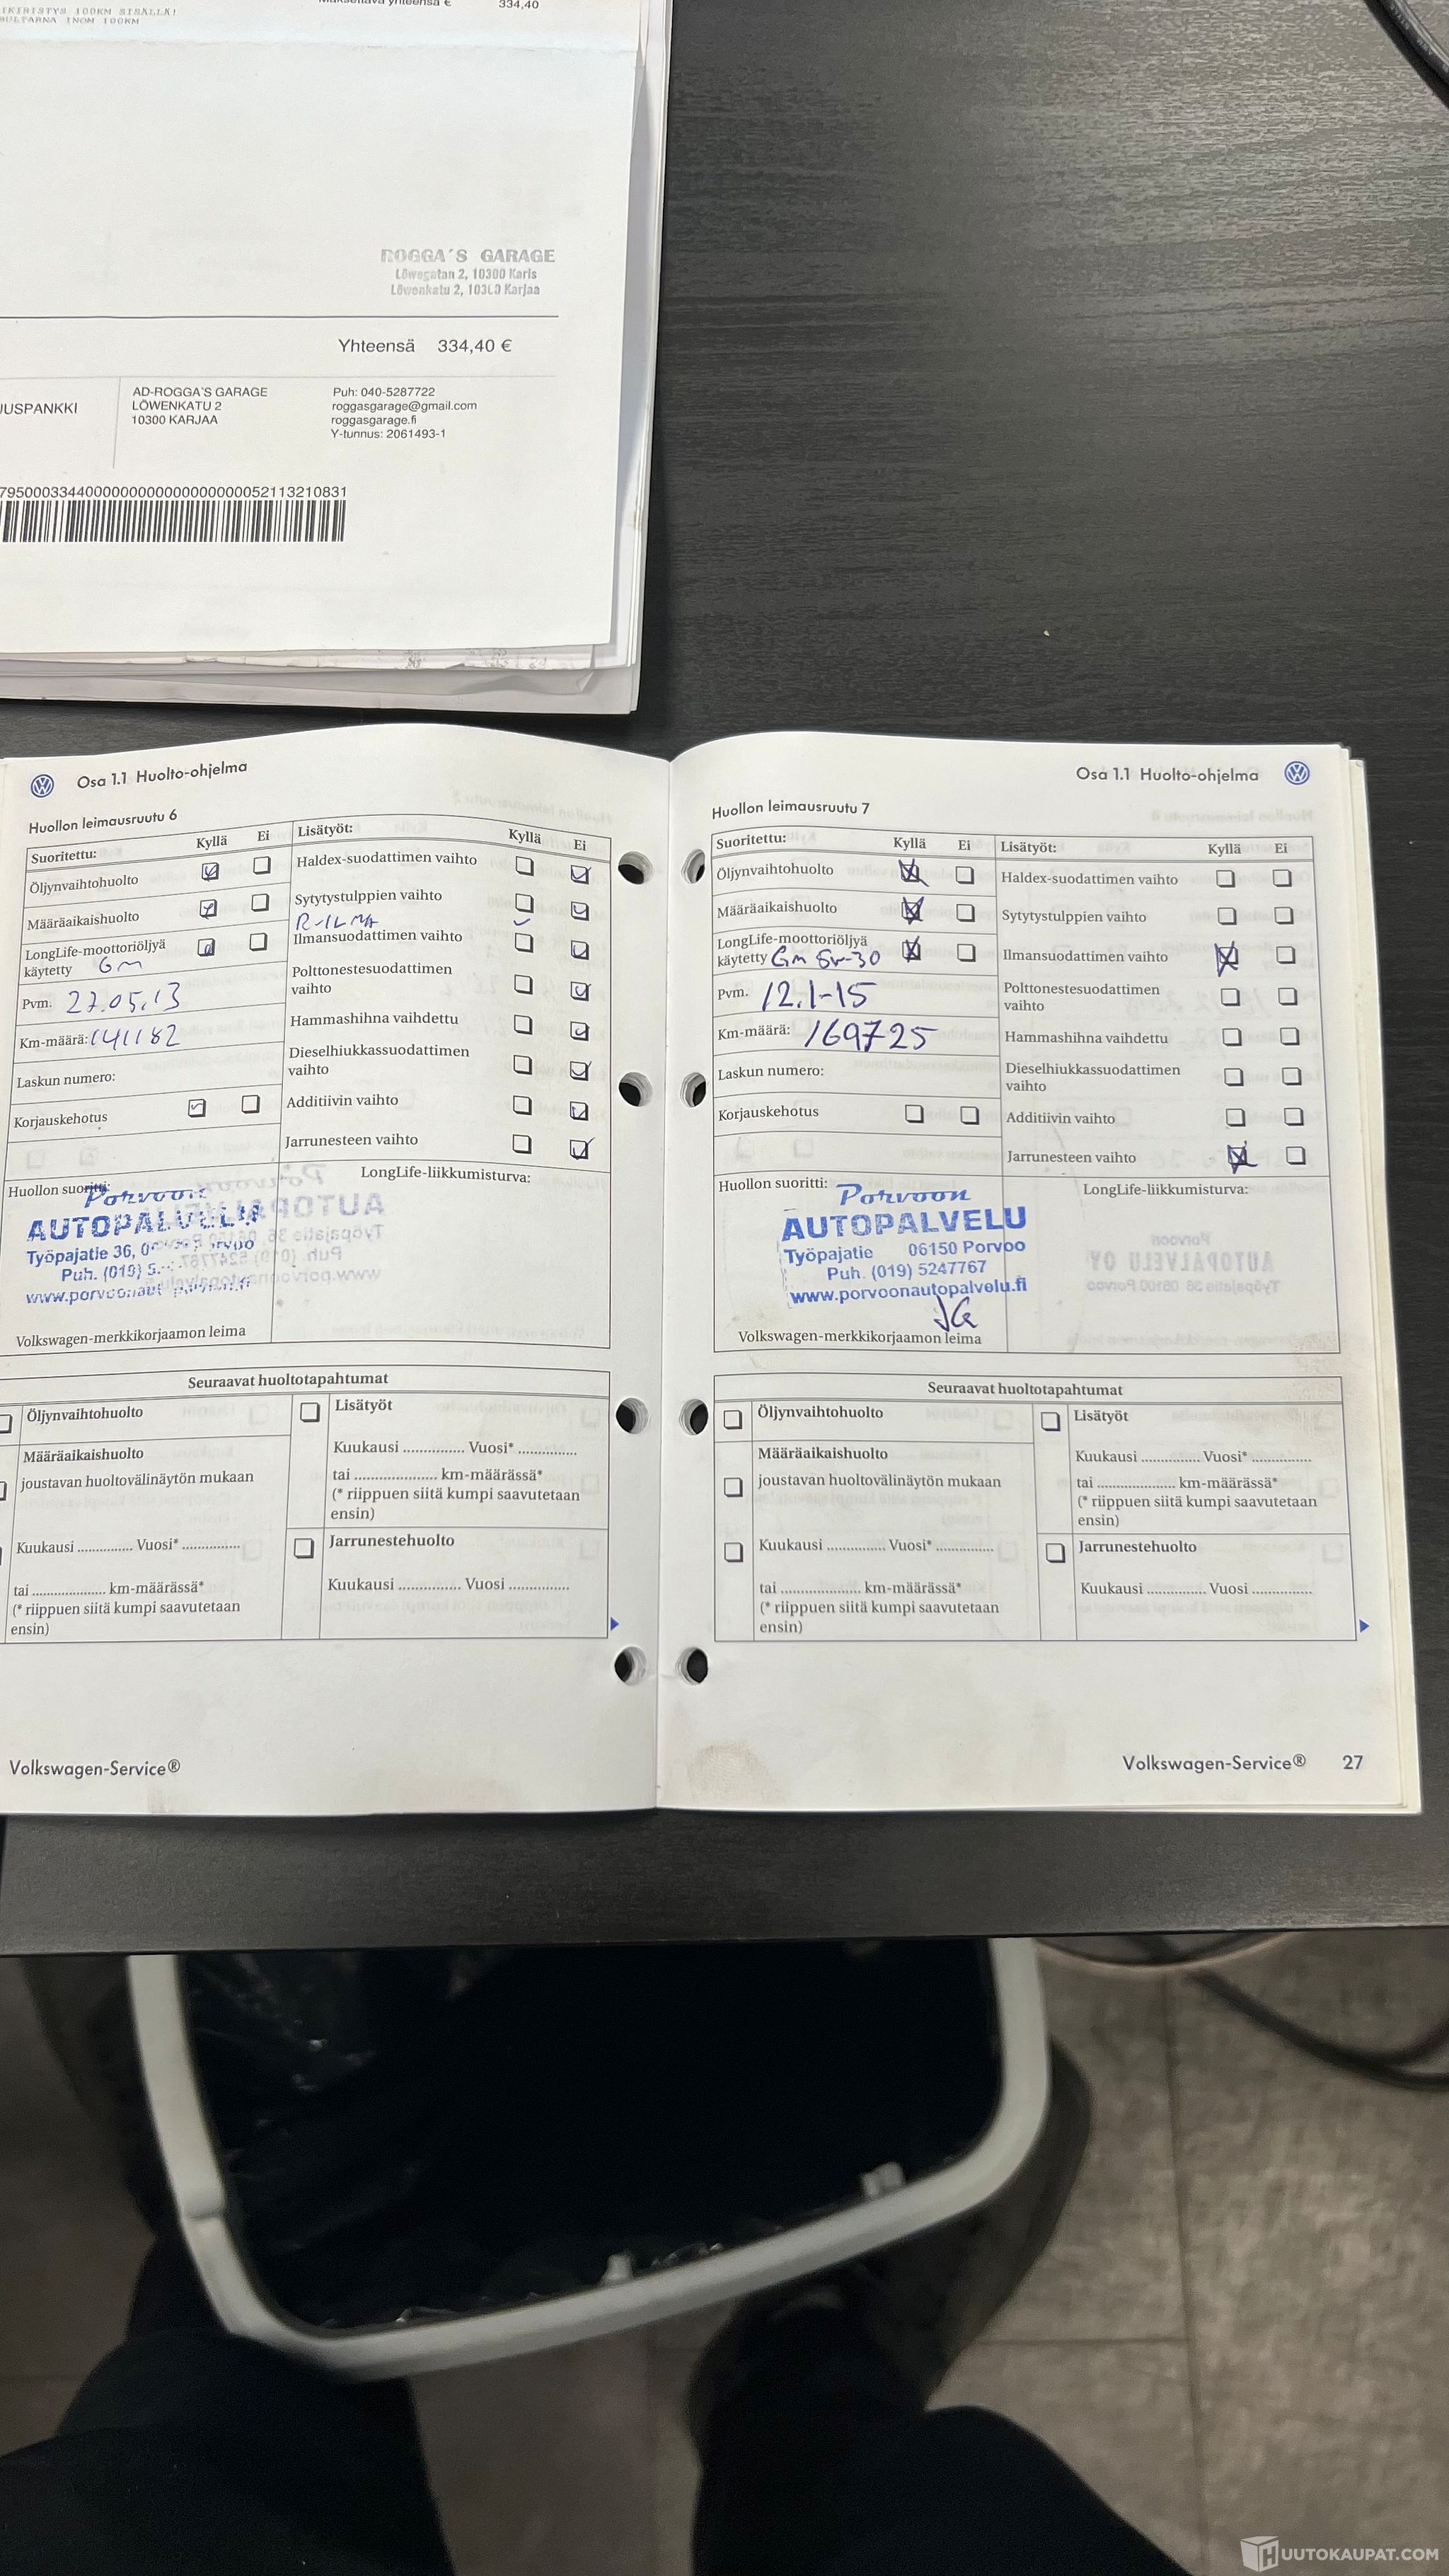 IKIRISTYS 100KM SISÄLLÄ!
BULTARNA INOM 100KM
Maksettava yhteensä € 334,40
ROGGA´S GARAGE
Löwegatan 2, 10300 Karis
Löwenkatu 2, 10300 Karjaa
Yhteensä 334,40 €
UUSPANKKI
AD-ROGGA'S GARAGE
LÖWENKATU 2
10300 KARJAA
Puh: 040-5287722
roggasgarage@gmail.com
roggasgarage.fi
Y-tunnus: 2061493-1
Osa 1.1 Huolto-ohjelma
Huollon leimausruutu 6
Suoritettu: Kyllä Ei
Öljynvaihtohuolto
Määräaikaishuolto
LongLife-moottoriöljyä
käytetty Gm
Pvm. 27.05.13
Km-määrä: 141182
Laskun numero:
Korjauskehotus
Lisätyöt: Kyllä Ei
Haldex-suodattimen vaihto
Sytytystulppien vaihto
R-ILMA
Ilmansuodattimen vaihto
Polttonestesuodattimen
vaihto
Hammashihna vaihdettu
Dieselhiukkassuodattimen
vaihto
Additiivin vaihto
Jarrunesteen vaihto
Huollon suoritti:
Porvoon
AUTOPALVELU
Työpajatie 36, Porvoo
Puh. (019)
Volkswagen-merkkikorjaamon leima
LongLife-liikkumisturva:
Seuraavat huoltotapahtumat
Öljynvaihtohuolto
Määräaikaishuolto
joustavan huoltovälinäytön mukaan
Kuukausi .............. Vuosi* ..............
tai .................... km-määrässä*
(* riippuen siitä kumpi saavutetaan
ensin)
Lisätyöt
Kuukausi .............. Vuosi* ..............
tai .................... km-määrässä*
(* riippuen siitä kumpi saavutetaan
ensin)
Jarrunestehuolto
Kuukausi .............. Vuosi ..............
Volkswagen-Service®
Osa 1.1 Huolto-ohjelma
Huollon leimausruutu 7
Suoritettu: Kyllä Ei
Öljynvaihtohuolto
Määräaikaishuolto
LongLife-moottoriöljyä
käytetty Gm 5w-30
Pvm. 12.1-15
Km-määrä: 169725
Laskun numero:
Korjauskehotus
Lisätyöt: Kyllä Ei
Haldex-suodattimen vaihto
Sytytystulppien vaihto
Ilmansuodattimen vaihto
Polttonestesuodattimen
vaihto
Hammashihna vaihdettu
Dieselhiukkassuodattimen
vaihto
Additiivin vaihto
Jarrunesteen vaihto
Huollon suoritti:
Porvoon
AUTOPALVELU
Työpajatie 06150 Porvoo
Puh. (019) 5247767
www.porvoonautopalvelu.fi
Volkswagen-merkkikorjaamon leima
LongLife-liikkumisturva:
Seuraavat huoltotapahtumat
Öljynvaihtohuolto
Määräaikaishuolto
joustavan huoltovälinäytön mukaan
Kuukausi .............. Vuosi* ..............
tai .................... km-määrässä*
(* riippuen siitä kumpi saavutetaan
ensin)
Lisätyöt
Kuukausi .............. Vuosi* ..............
tai .................... km-määrässä*
(* riippuen siitä kumpi saavutetaan
ensin)
Jarrunestehuolto
Kuukausi .............. Vuosi ..............
Volkswagen-Service® 27
HUUTOKAUPAT.COM